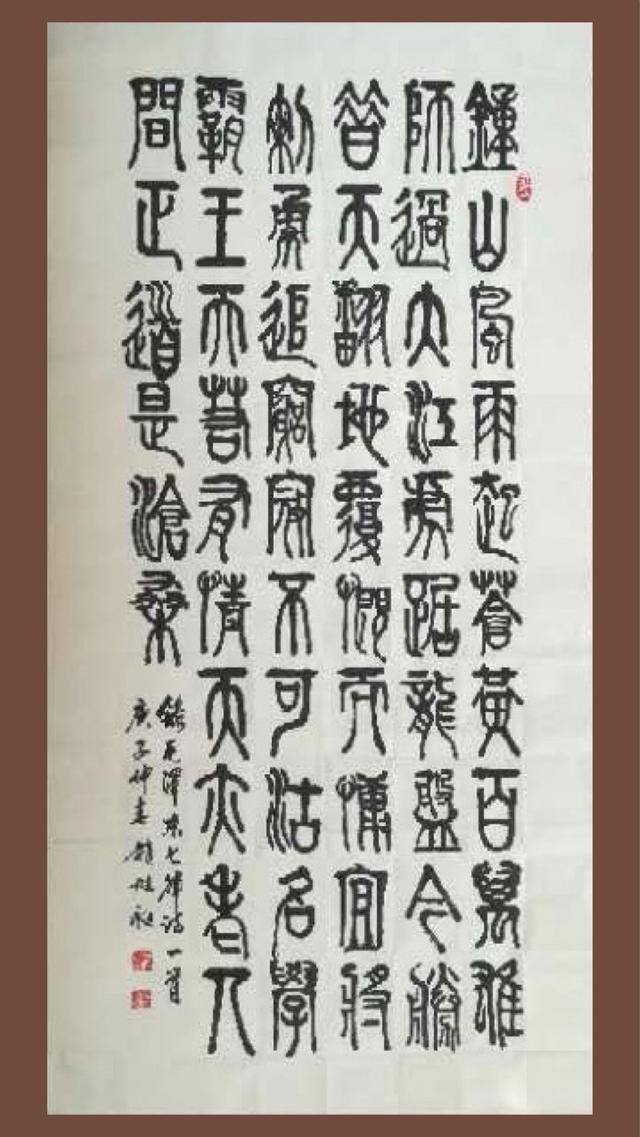 鐘山風雨起蒼黃百萬雄
師過大江虎踞龍盤今勝
昔天翻地覆慨而慷宜將
剩勇追窮寇不可沽名學
霸王天若有情天亦老人
間正道是滄桑
錄毛澤東七律詩一首
庚子仲春